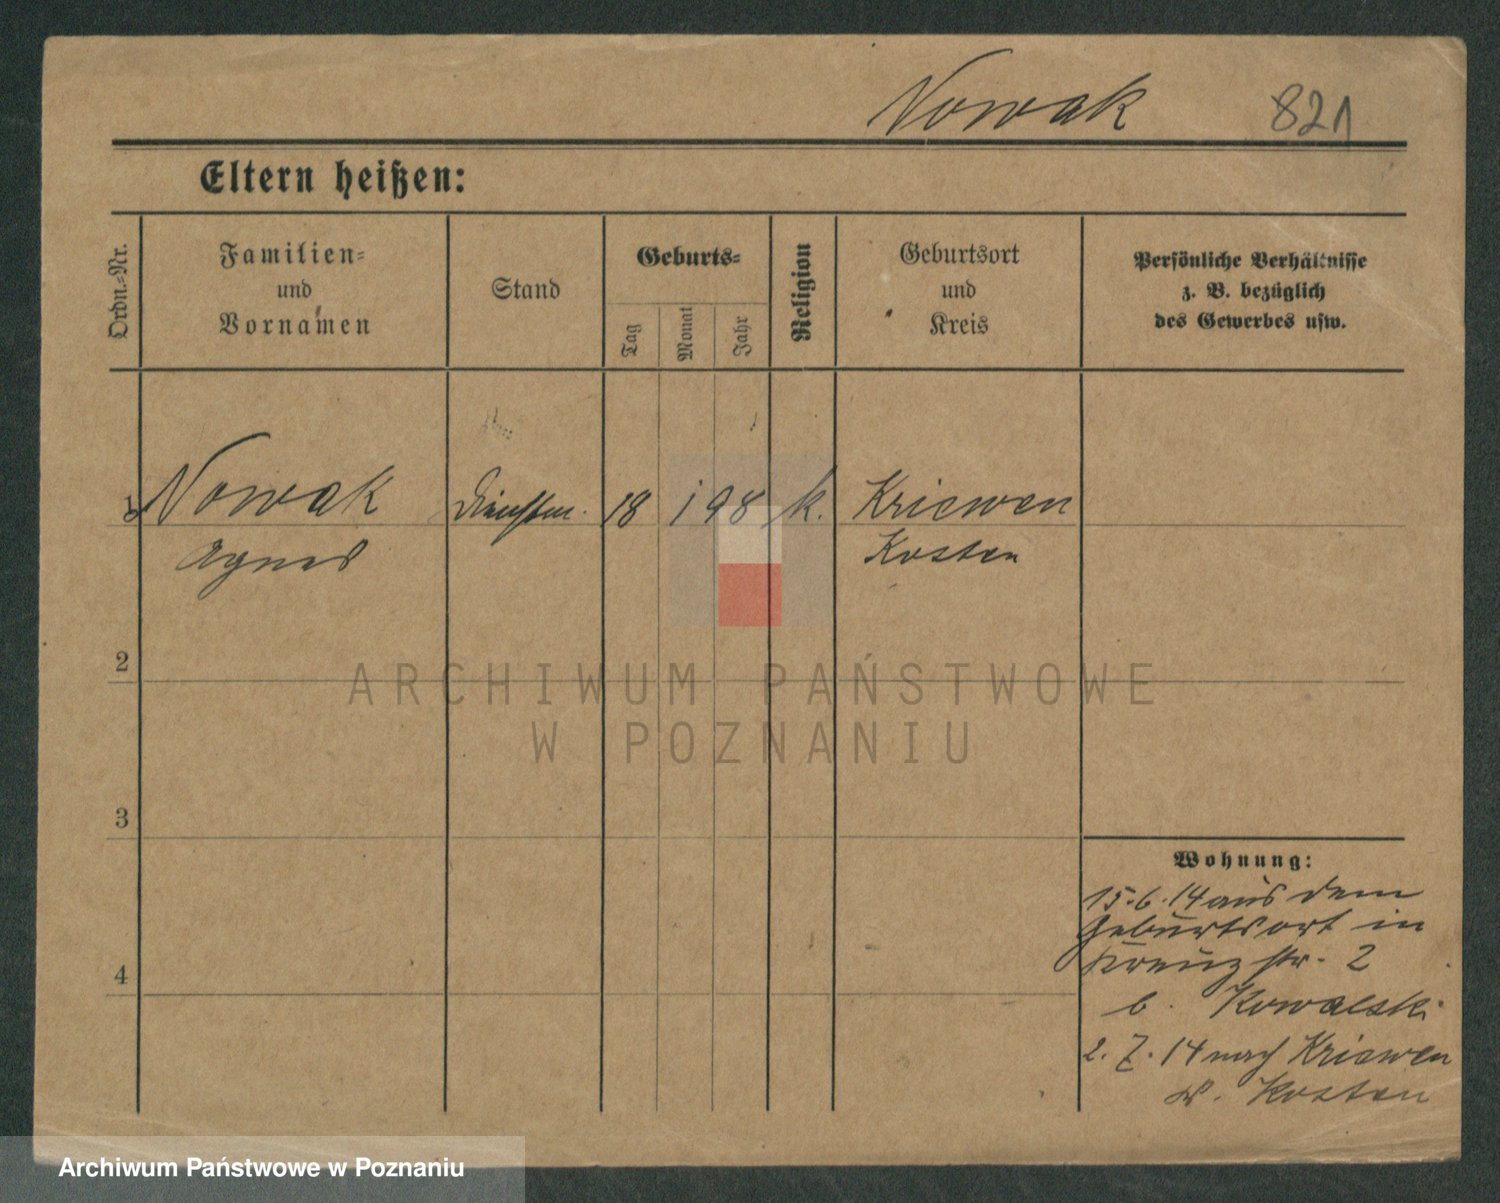 Nowak 821
Eltern heißen:
Ordn.=Nr.
Familien=
und
Vornamen
Stand
Geburts=
Tag
Monat
Jahr
Religion
Geburtsort
und
Kreis
Persönliche Verhältnisse
z. B. bezüglich
des Gewerbes usw.
1 Nowak Dienstm. 18 1 98 k. Kriewen
Agnes Kosten
2
3
4
Wohnung:
15.6.14 aus dem
Geburtsort in
Kreuzstr. 2
b. Kowalski
2.7.14 nach Kriewen
Kosten
ARCHIWUM PAŃSTWOWE
W POZNANIU
Archiwum Państwowe w Poznaniu